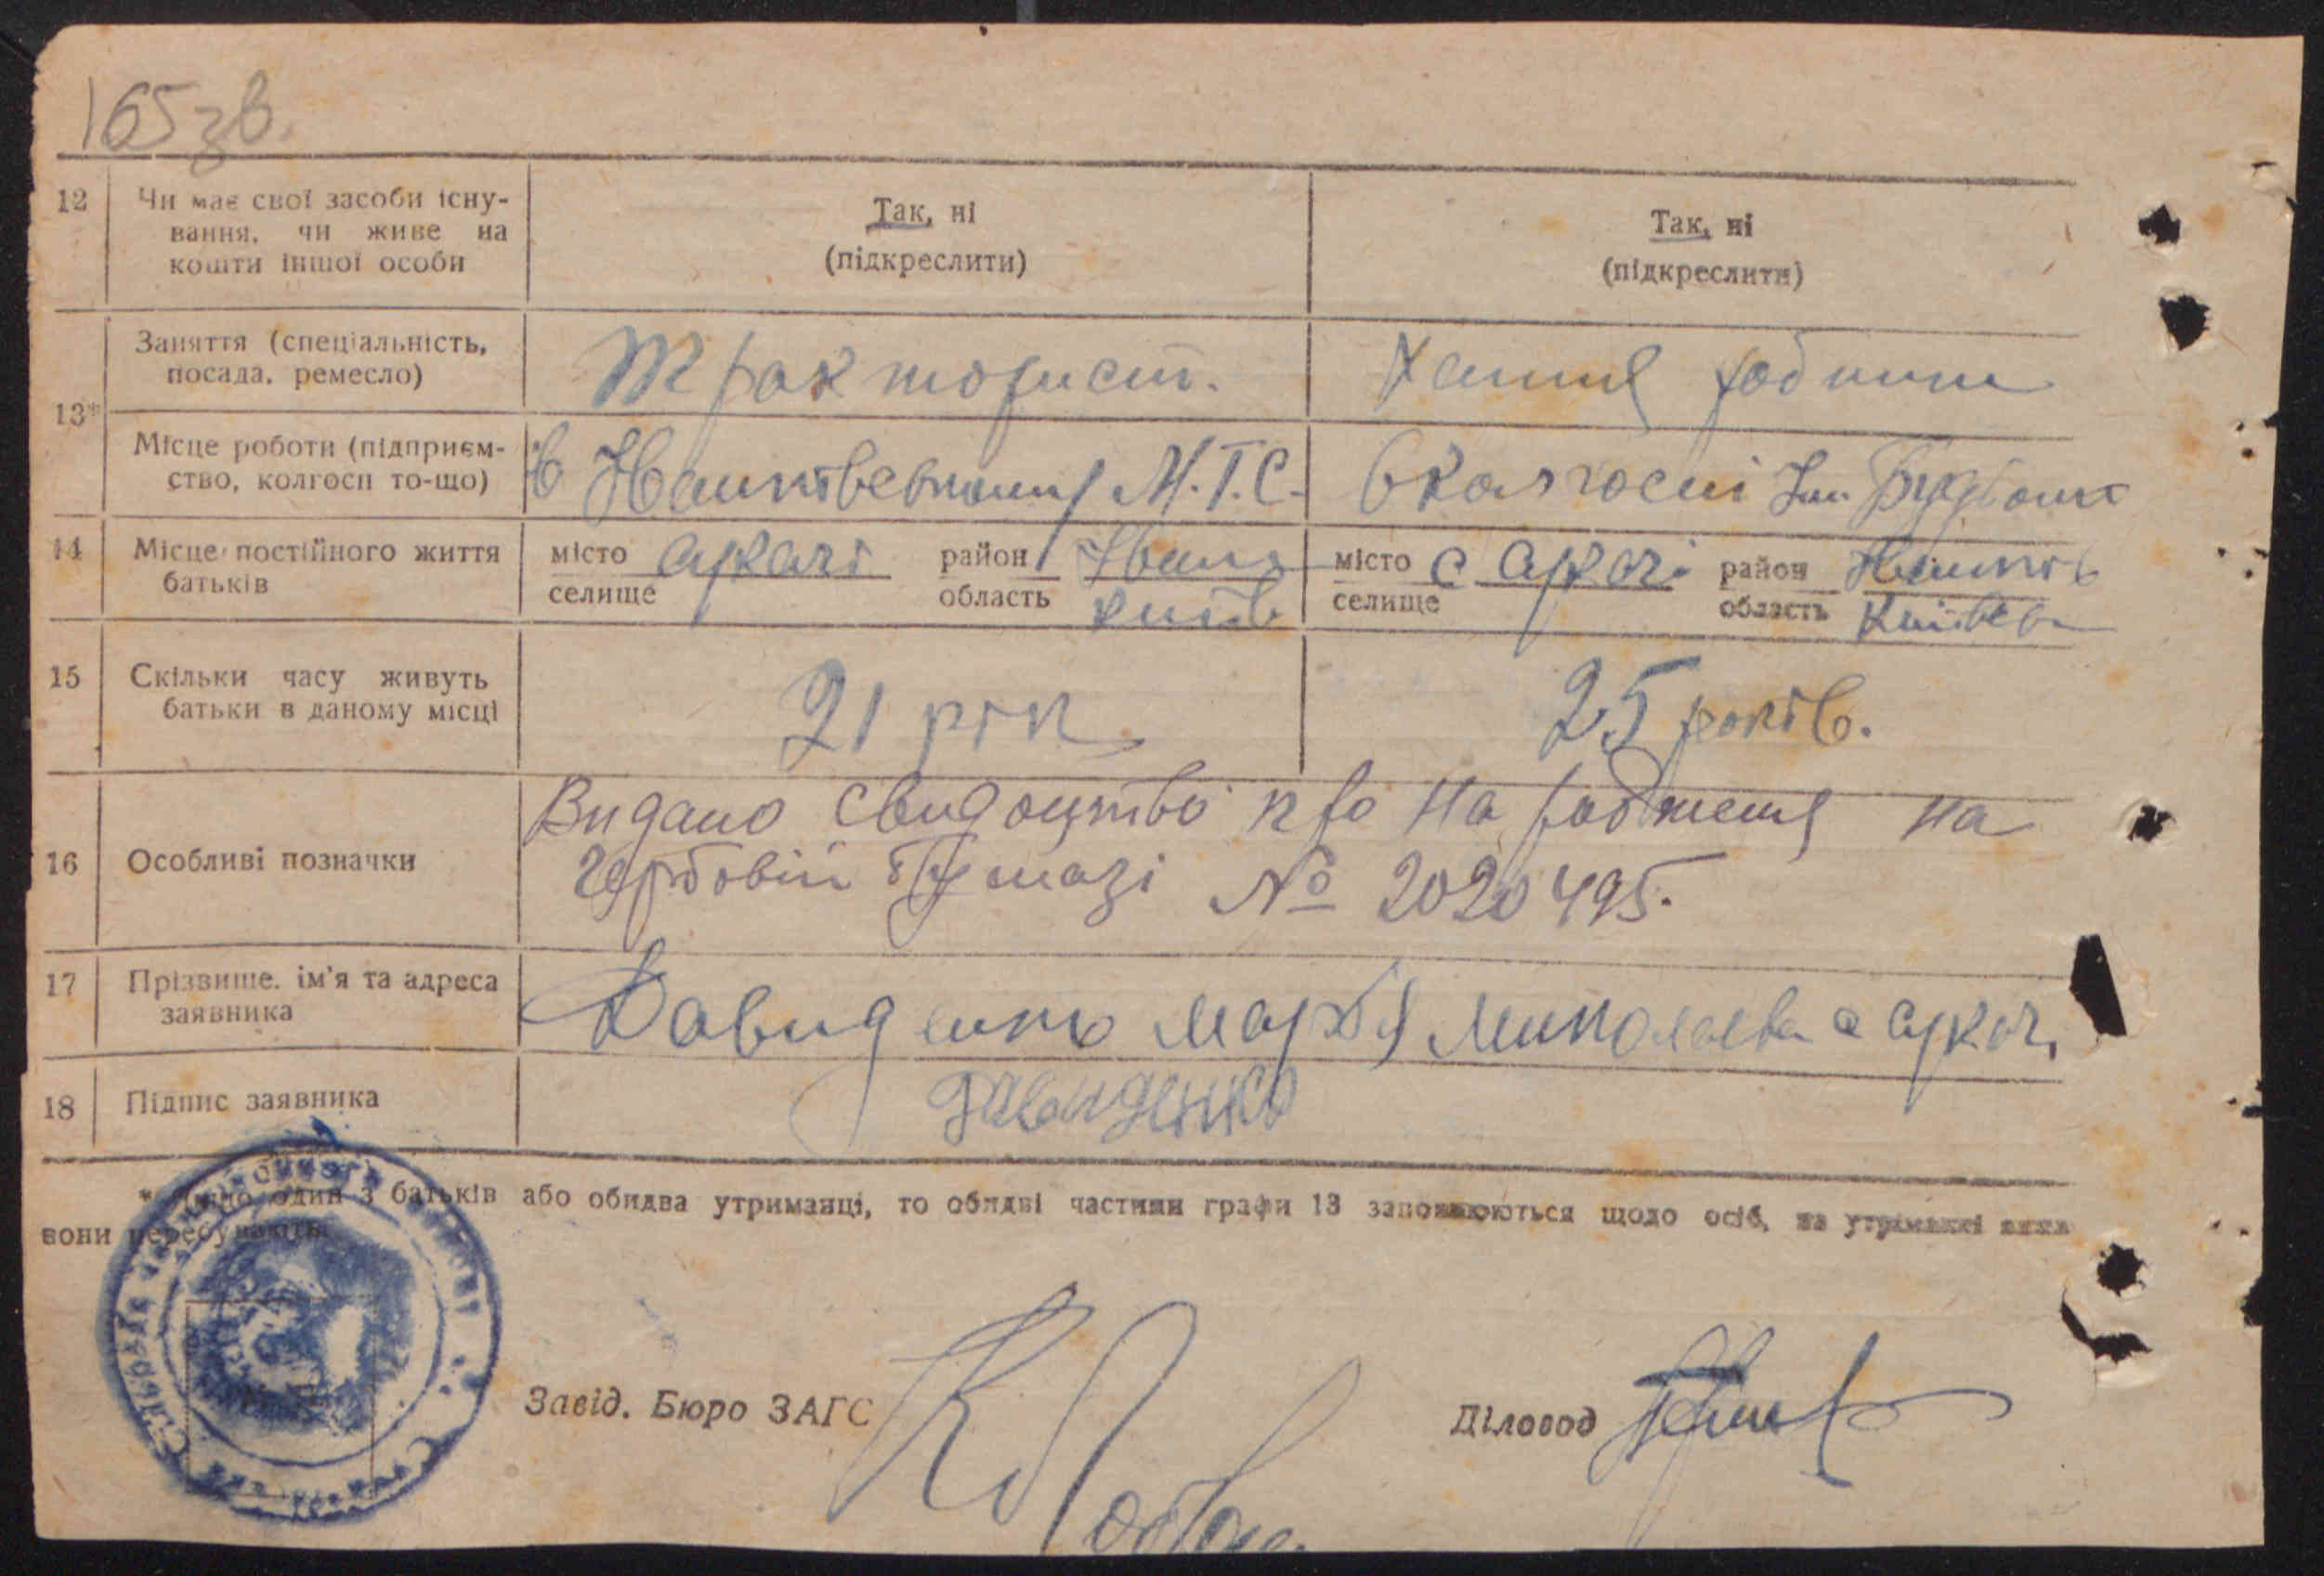 165 зв.
12 Чи має свої засоби існу-
вання, чи живе на
кошти іншої особи
Так, ні
(підкреслити)
Так, ні
(підкреслити)
13*
Заняття (спеціальність,
посада, ремесло)
Тракторист.
Хатня робітн
Місце роботи (підприєм-
ство, колгосп то-що)
в М.Т.С.
В колгоспі Ім.
14 Місце постійного життя
батьків
місто
селище
район
область
Київ
місто с
селище
район
область
15 Скільки часу живуть
батьки в даному місці
21 рік
25 років.
16 Особливі позначки
Видано свидоцтво про народженя на
гербовій бумазі № 2020495.
17 Прізвище, ім'я та адреса
заявника
Давиденко Марія Миколаєва с
18 Підпис заявника
Давиденко
* Якщо один з батьків або обидва утриманці, то обидві частини графи 13 заповнюються щодо осіб, на утриманні яких
вони перебувають
Завід. Бюро ЗАГС
Діловод